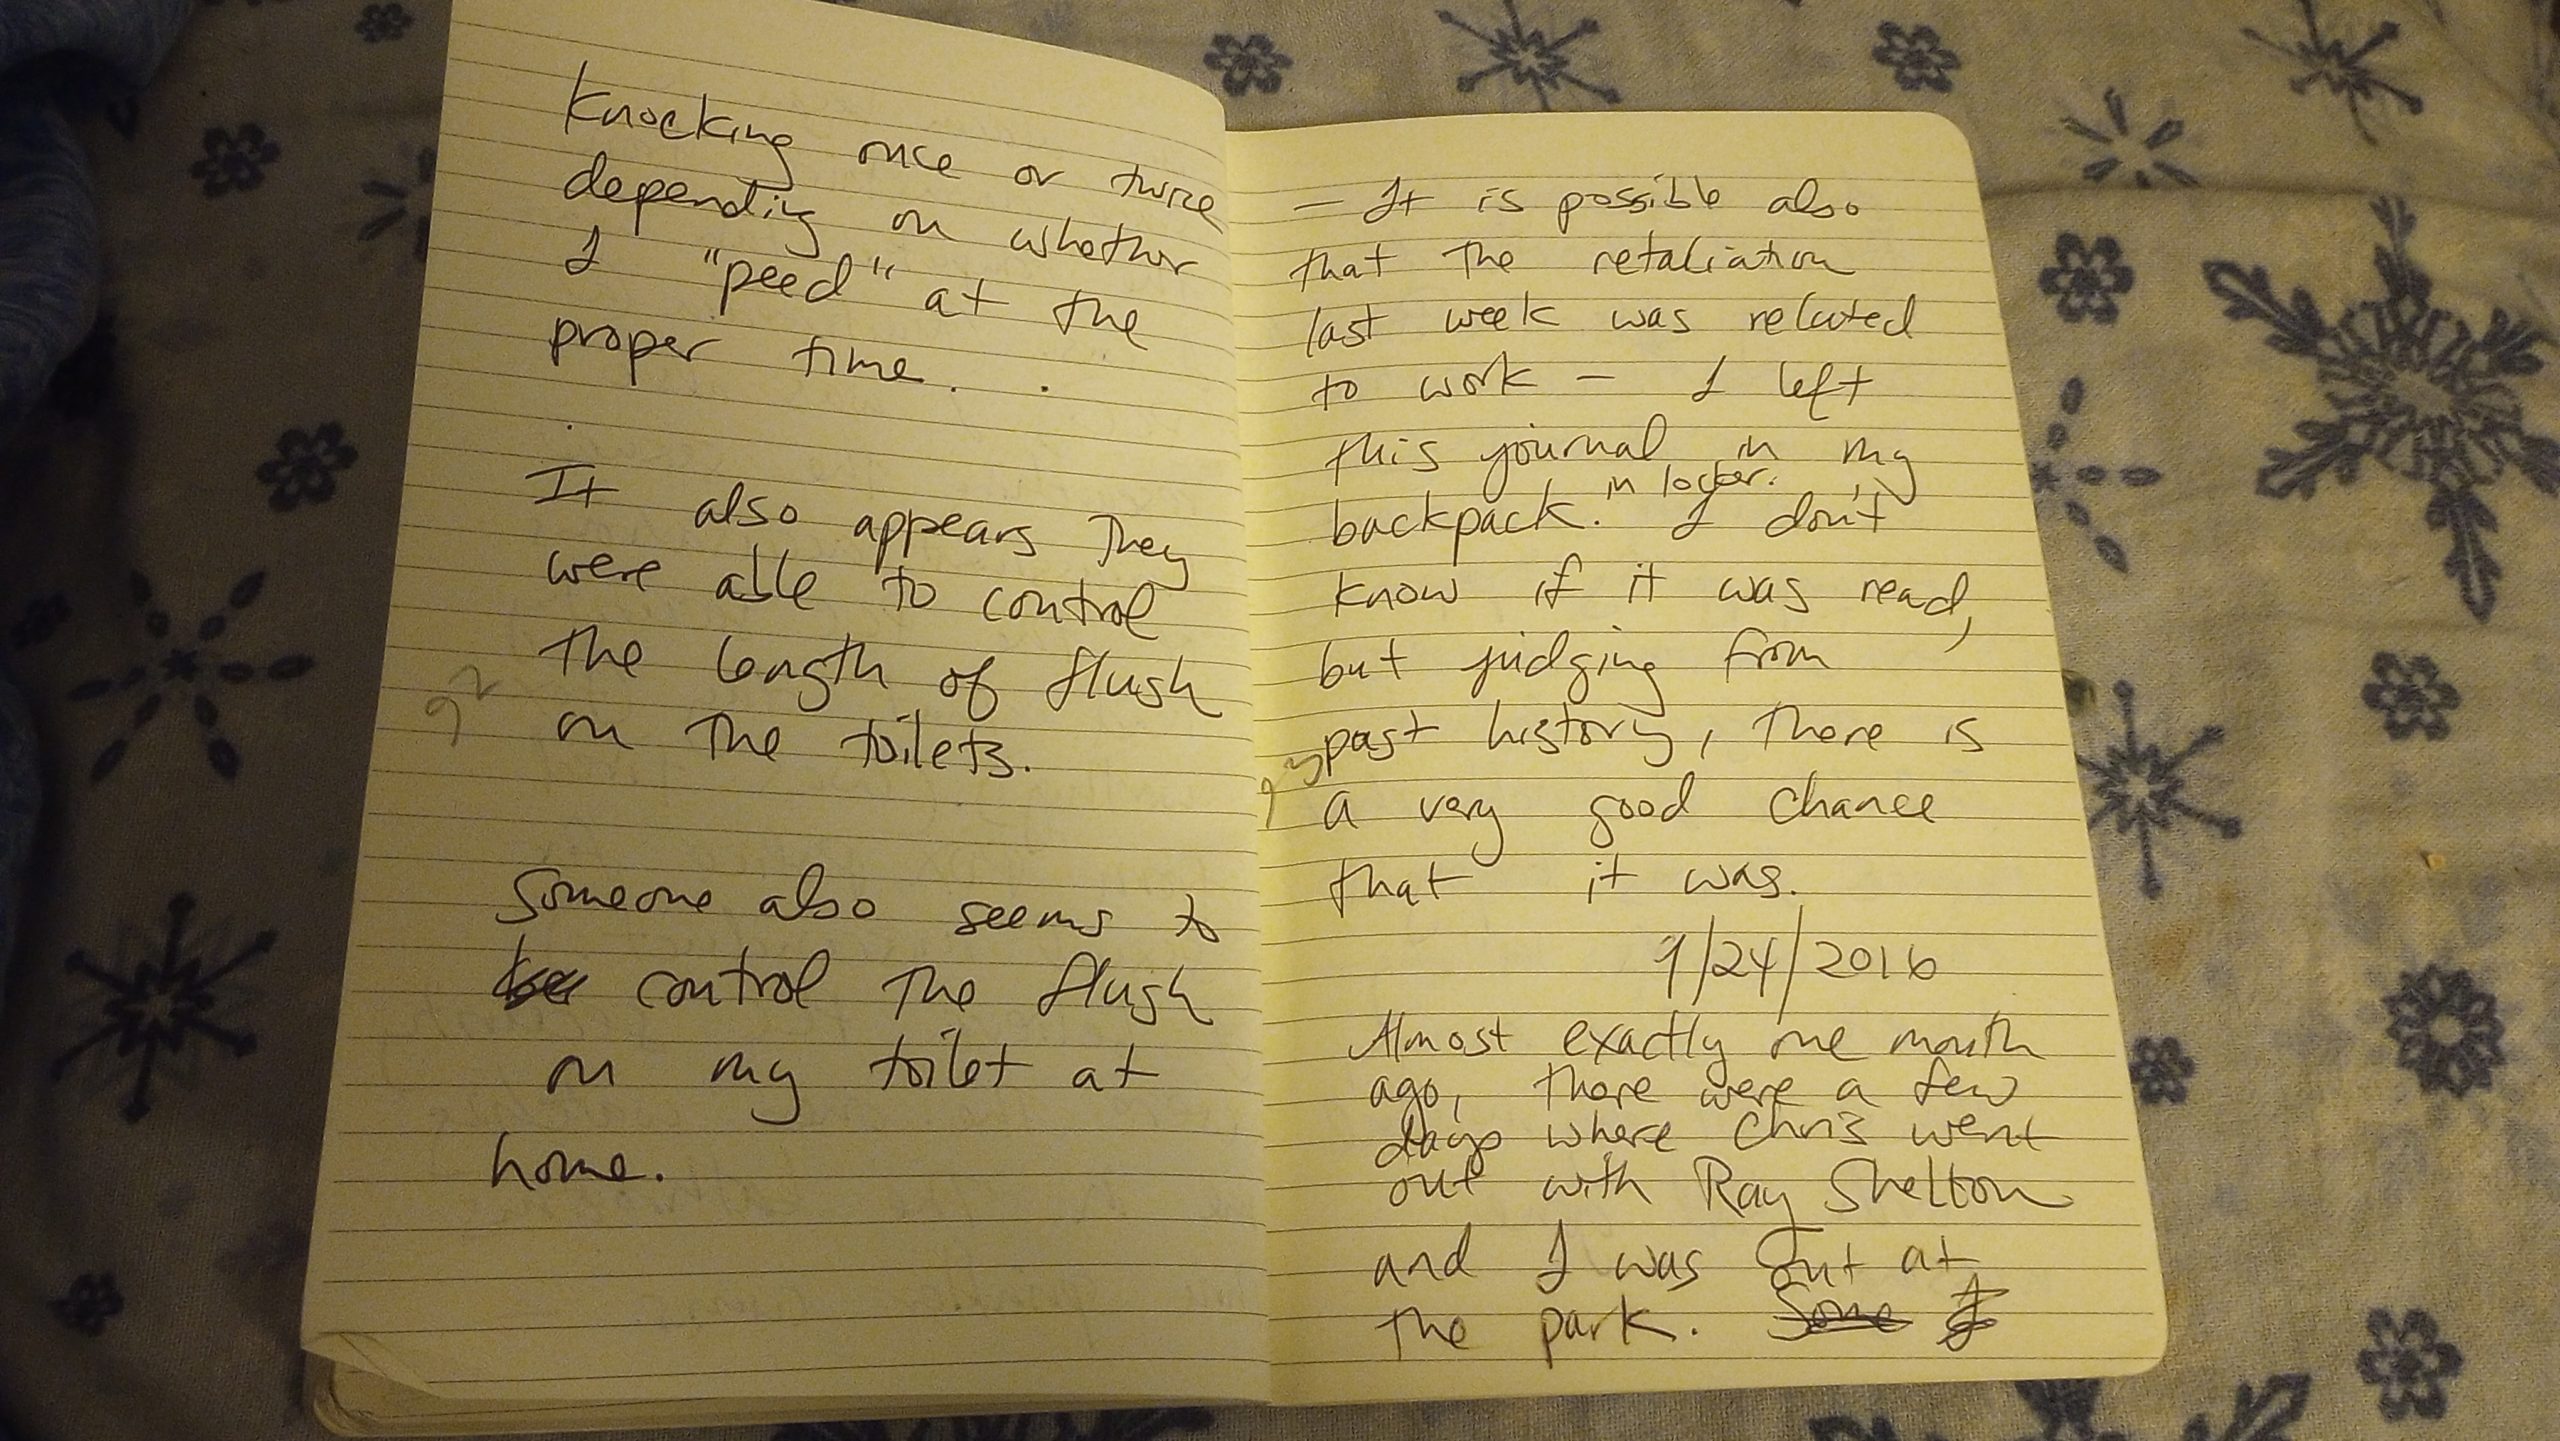 Knocking once or twice
depending on whether
I "peed" at the
proper time.
It also appears they
were able to control
the length of flush
on the toilets.
92
Someone also seems to
control the flush
on my toilet at
home.
- It is possible also
that the retaliation
last week was related
to work - I left
this journal in my
in locker.
backpack. I don't
know if it was read,
but judging from
past history, there is
93
a very good chance
that it was.
9/24/2016
Almost exactly one month
ago, there were a few
days where Chris went
out with Ray Shelton
and I was out at
the park. Some I